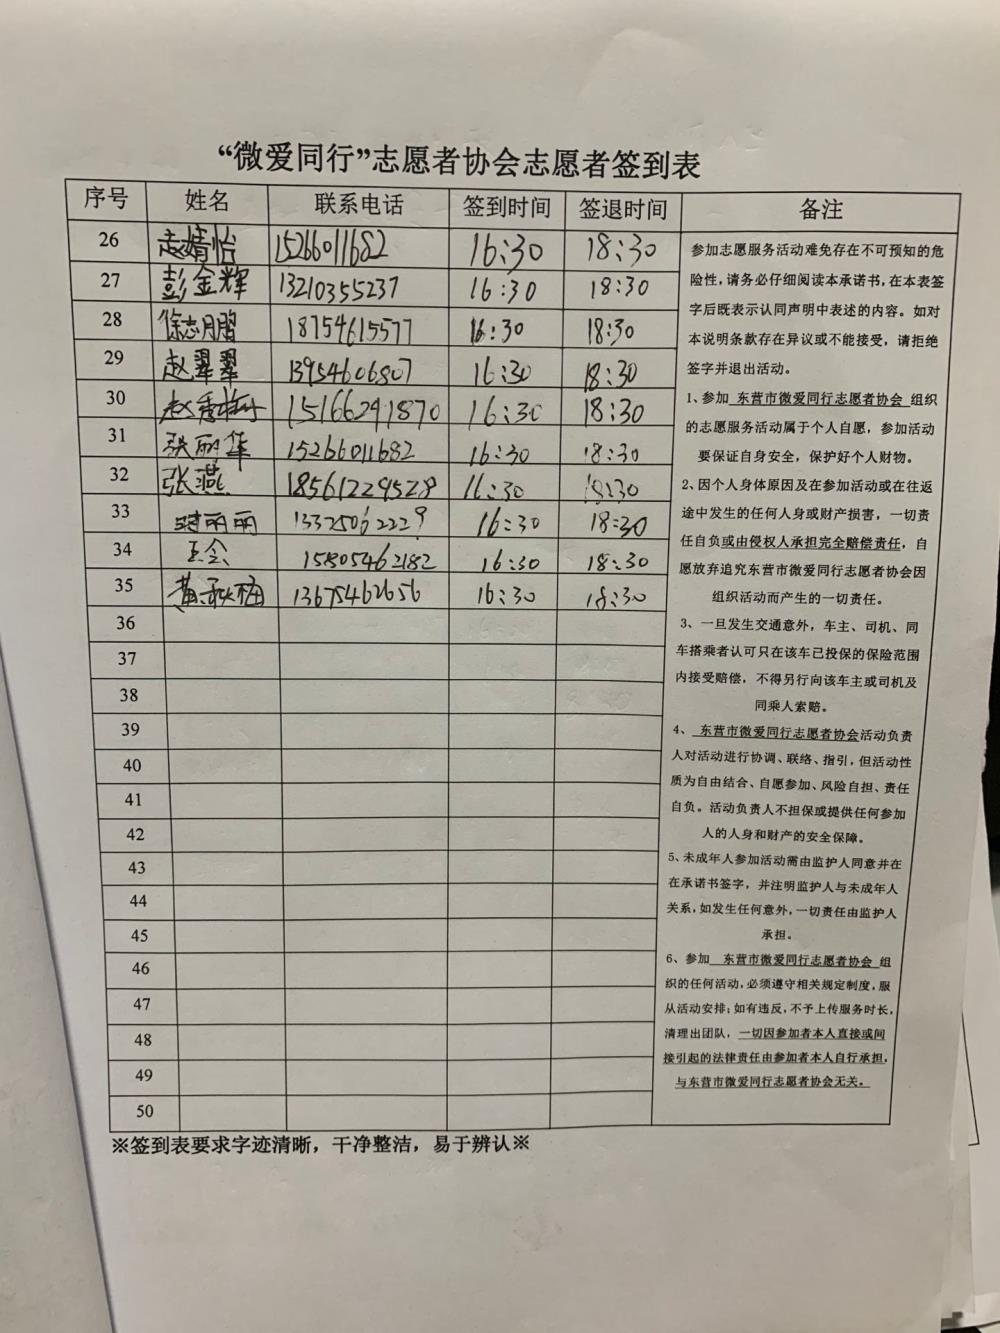 “微爱同行”志愿者协会志愿者签到表
序号 姓名 联系电话 签到时间 签退时间 备注
26 赵婧怡 15266011682 16:30 18:30
27 彭金辉 13210355237 16:30 18:30
28 徐志月 18754615577 16:30 18:30
29 赵翠翠 13954606807 16:30 18:30
30 赵秀梅 15166291870 16:30 18:30
31 张丽华 15266011682 16:30 18:30
32 张燕 18561229528 16:30 18:30
33 丽丽 13325062229 16:30 18:30
34 王会 15805462182 16:30 18:30
35 黄秋梅 13675462656 16:30 18:30
36
37
38
39
40
41
42
43
44
45
46
47
48
49
50
参加志愿服务活动难免存在不可预知的危
险性，请务必仔细阅读本承诺书，在本表签
字后既表示认同声明中表述的内容。如对
本说明条款存在异议或不能接受，请拒绝
签字并退出活动。
1、参加 东营市微爱同行志愿者协会 组织
的志愿服务活动属于个人自愿，参加活动
要保证自身安全，保护好个人财物。
2、因个人身体原因及在参加活动或在往返
途中发生的任何人身或财产损害，一切责
任自负或由侵权人承担完全赔偿责任，自
愿放弃追究东营市微爱同行志愿者协会因
组织活动而产生的一切责任。
3、一旦发生交通意外，车主、司机、同
车搭乘者认可只在该车已投保的保险范围
内接受赔偿，不得另行向该车主或司机及
同乘人索赔。
4、 东营市微爱同行志愿者协会活动负责
人对活动进行协调、联络、指引，但活动性
质为自由结合、自愿参加、风险自担、责任
自负。活动负责人不担保或提供任何参加
人的人身和财产的安全保障。
5、未成年人参加活动需由监护人同意并在
在承诺书签字，并注明监护人与未成年人
关系，如发生任何意外，一切责任由监护人
承担。
6、参加 东营市微爱同行志愿者协会 组
织的任何活动，必须遵守相关规定制度，服
从活动安排；如有违反，不予上传服务时长，
清理出团队，一切因参加者本人直接或间
接引起的法律责任由参加者本人自行承担，
与东营市微爱同行志愿者协会无关。
※签到表要求字迹清晰，干净整洁，易于辨认※